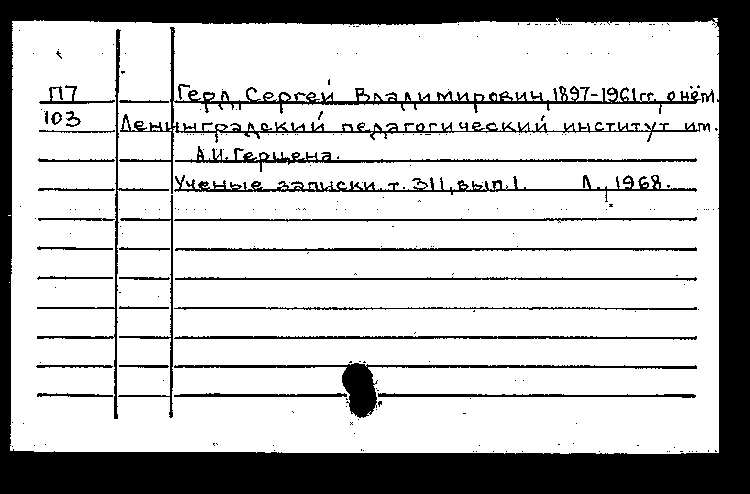 П7 Герд, Сергей Владимирович, 1897-1961гг., о нём.
103 Ленинградский педагогический институт им.
А.И. Герцена.
Ученые записки. т. 311, вып. 1. Л., 1968.